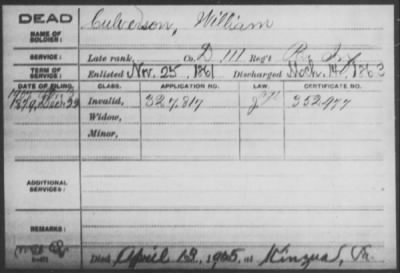 DEAD
NAME OF SOLDIER:
Culverson, William
SERVICE:
Late rank, Co. D 111 Reg't Pa Inf
TERM OF SERVICE:
Enlisted Nov. 25, 1861 Discharged Mch. 14, 1863
DATE OF FILING. CLASS. APPLICATION NO. LAW. CERTIFICATE NO.
1879, Dec 29 Invalid, 327,817 352,977
Widow,
Minor,
ADDITIONAL SERVICES:
REMARKS:
Died April 13, 1905, at Kinzua, Pa.